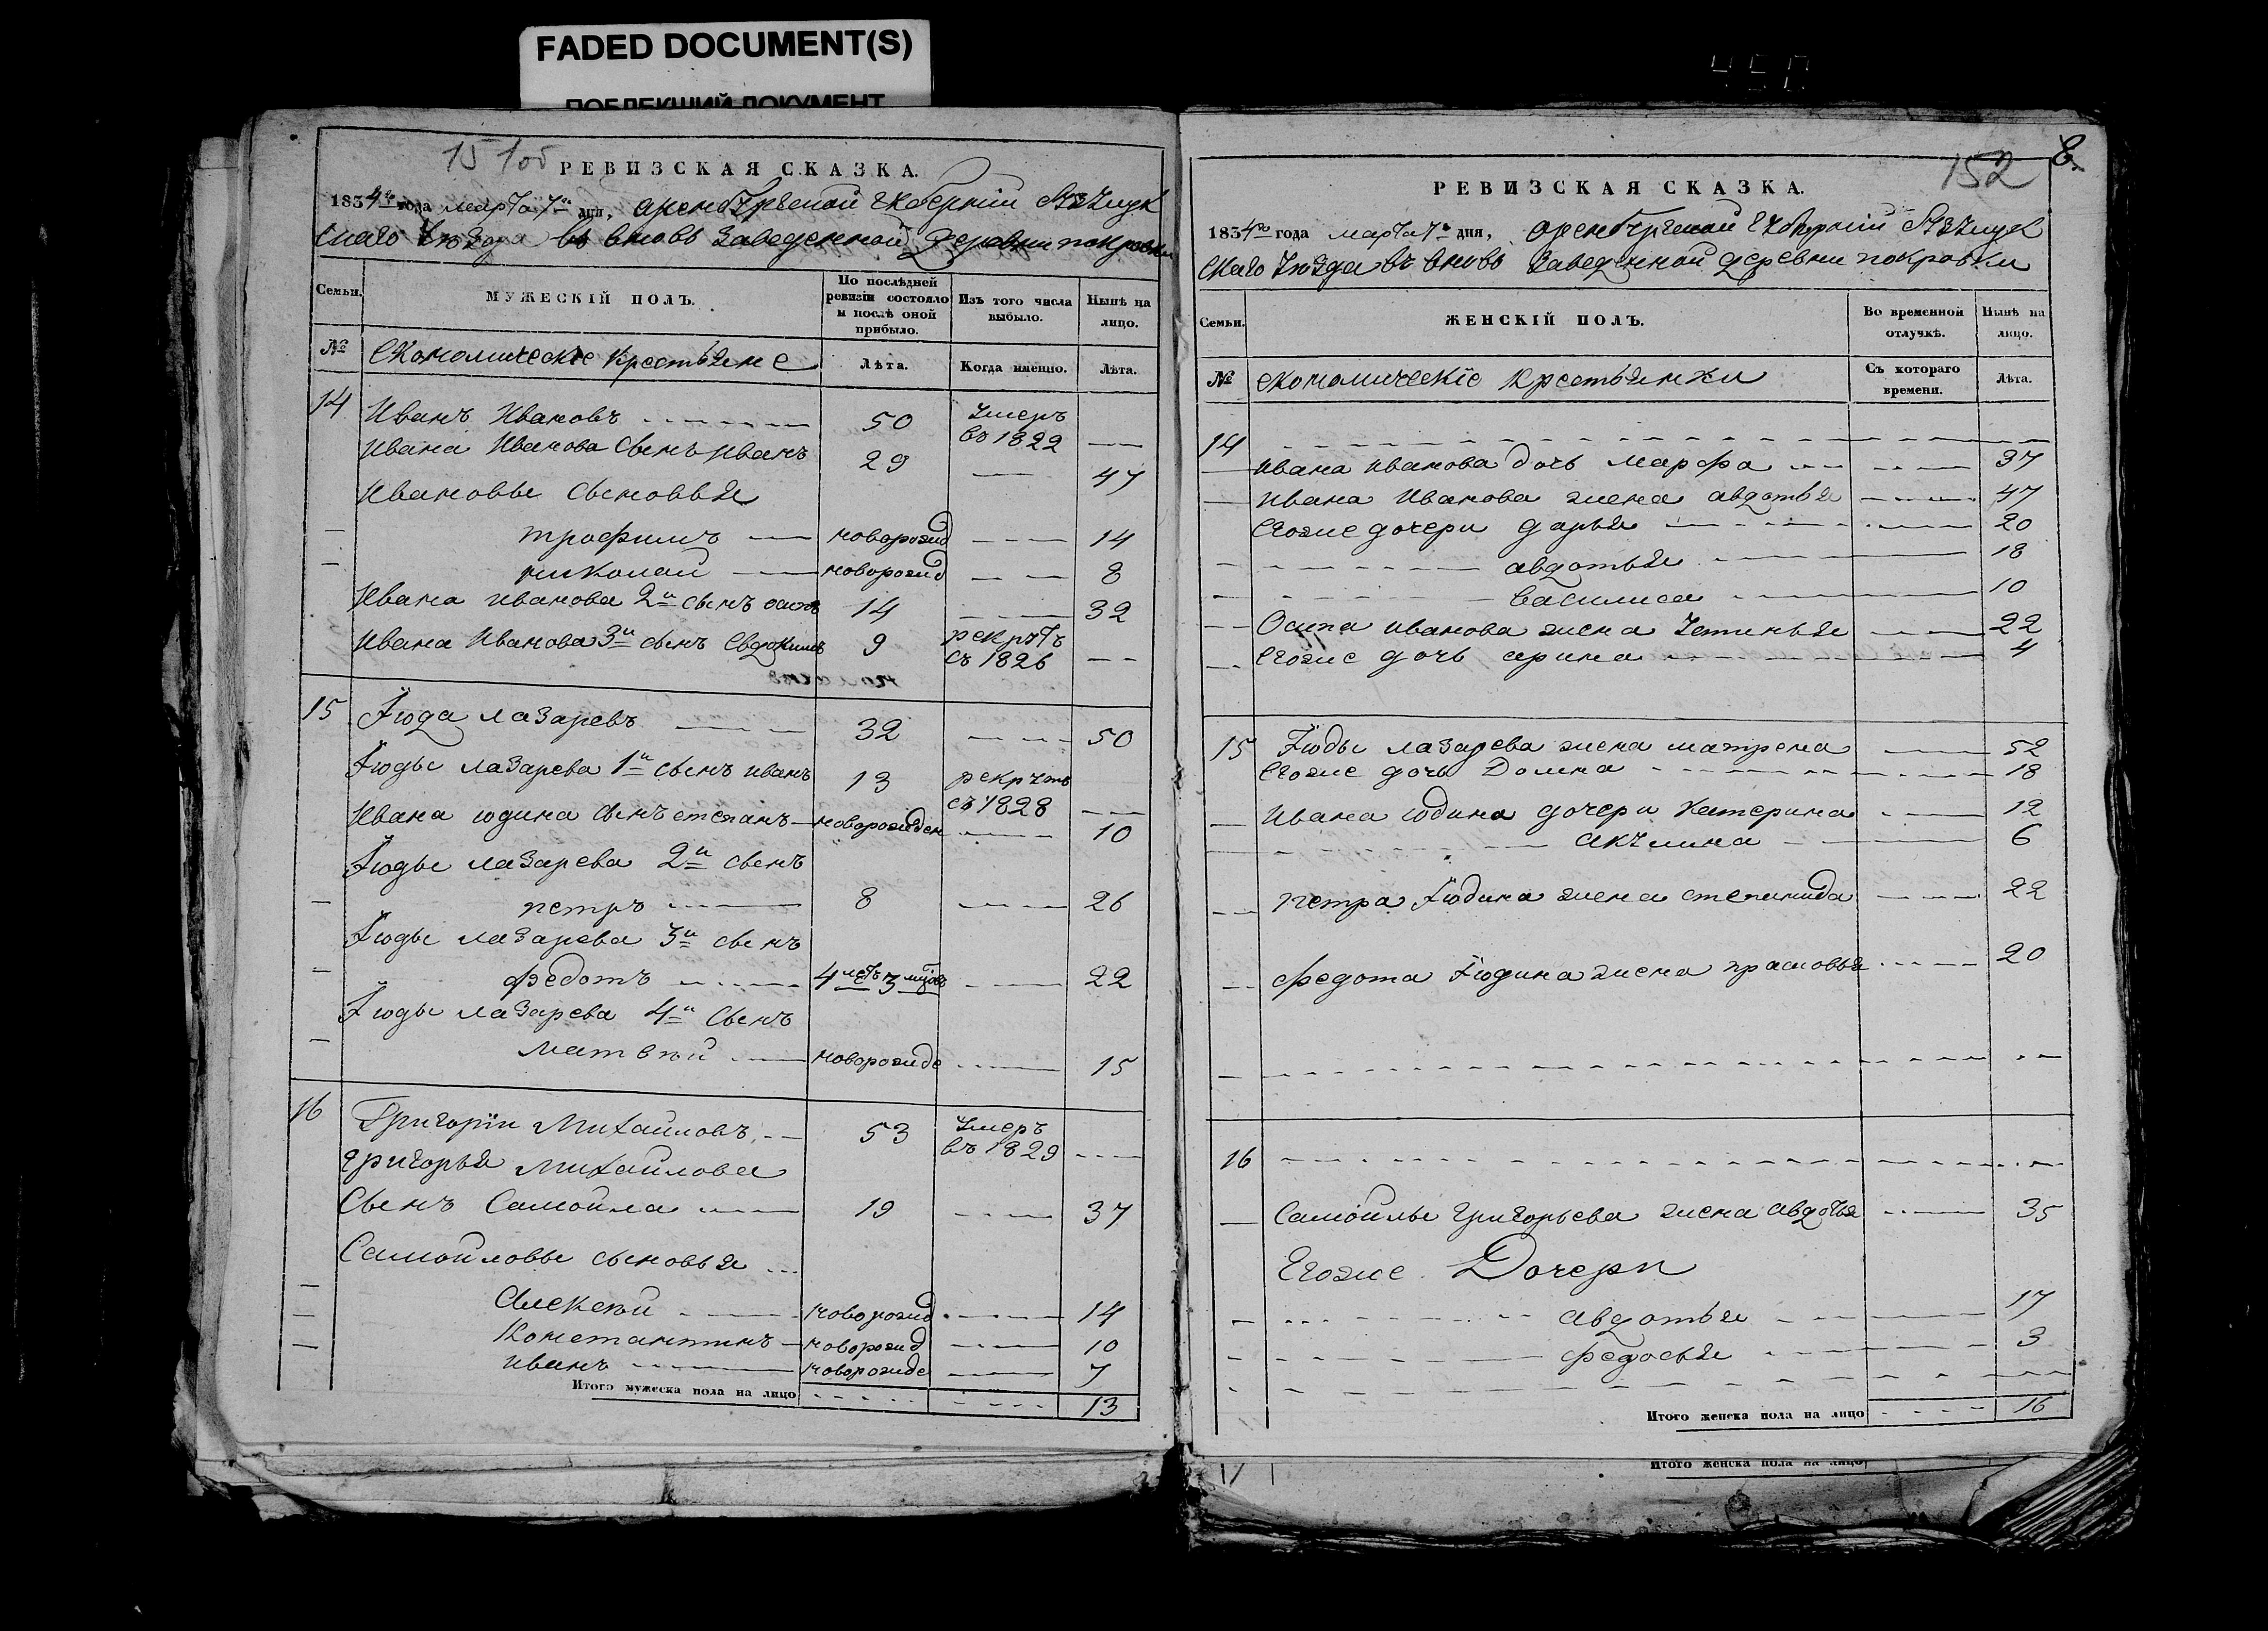 FADED DOCUMENT(S)
ПОБЛЕКШИЙ ДОКУМЕНТ
151об
РЕВИЗСКАЯ СКАЗКА.
1834го года марта 7го дня, оренбургской губерніи
скаго уѣзда въ вновь заведенной деревни покровки
Семьи.
МУЖЕСКІЙ ПОЛЪ.
По послѣдней ревизіи состояло и послѣ оной прибыло.
Изъ того числа выбыло.
Нынѣ на лицо.
№
Економическіе крестьяне
Лѣта.
Когда именно.
Лѣта.
14 Иванъ Ивановъ 50 умеръ въ 1822
Ивана Иванова сынъ иванъ 29 47
Ивановы сыновья
трофимъ новорожд 14
николай новорожд 8
Ивана иванова 2й сынъ осипъ 14 32
Ивана Иванова 3й сынъ Евдокимъ 9 рекрутъ съ 1826
15 Июда лазаревъ 32 50
Июды лазарева 1й сынъ иванъ 13 рекрутъ съ 1828
Ивана юдина сынъ степанъ новорожден 10
Июды лазарева 2й сынъ
петръ 8 26
Июды лазарева 3й сынъ
федотъ 4 летъ 3 мцовъ 22
Июды лазарева 4й сынъ
Матвѣй новорожде 15
16 Григорій Михайловъ 53 умеръ въ 1829
григорья Михайлова
Сынъ Самойла 19 37
Самойловы сыновья
Алексѣй новорожд 14
Константинъ новорожд 10
иванъ новорожде 7
Итого мужеска пола на лицо 13
152
8.
РЕВИЗСКАЯ СКАЗКА.
1834го года марта 7го дня, оренбургской губерніи
скаго уѣзда въ вновь заведенной деревни покровки
Семьи.
ЖЕНСКІЙ ПОЛЪ.
Во временной отлучкѣ.
Нынѣ на лицо.
№
економическіе крестьянки
Съ котораго времени.
Лѣта.
14
ивана иванова дочь марфа 37
ивана Иванова жена авдотья 47
Егоже дочери дарья 20
авдотья 18
Василиса 10
Осипа иванова жена устинья 22
Егоже дочь арина 4
15 Июды лазарева жена матрена 52
Егоже дочь Домна 18
ивана юдина дочери катерина 12
акулина 6
петра Июдина жена степанида 22
федота Июдина жена прасковья 20
16
Самойлы григорьева жена авдотья 35
Егоже Дочери
авдотья 17
федосья 3
Итого женска пола на лицо 16
Итого женска пола на лицо